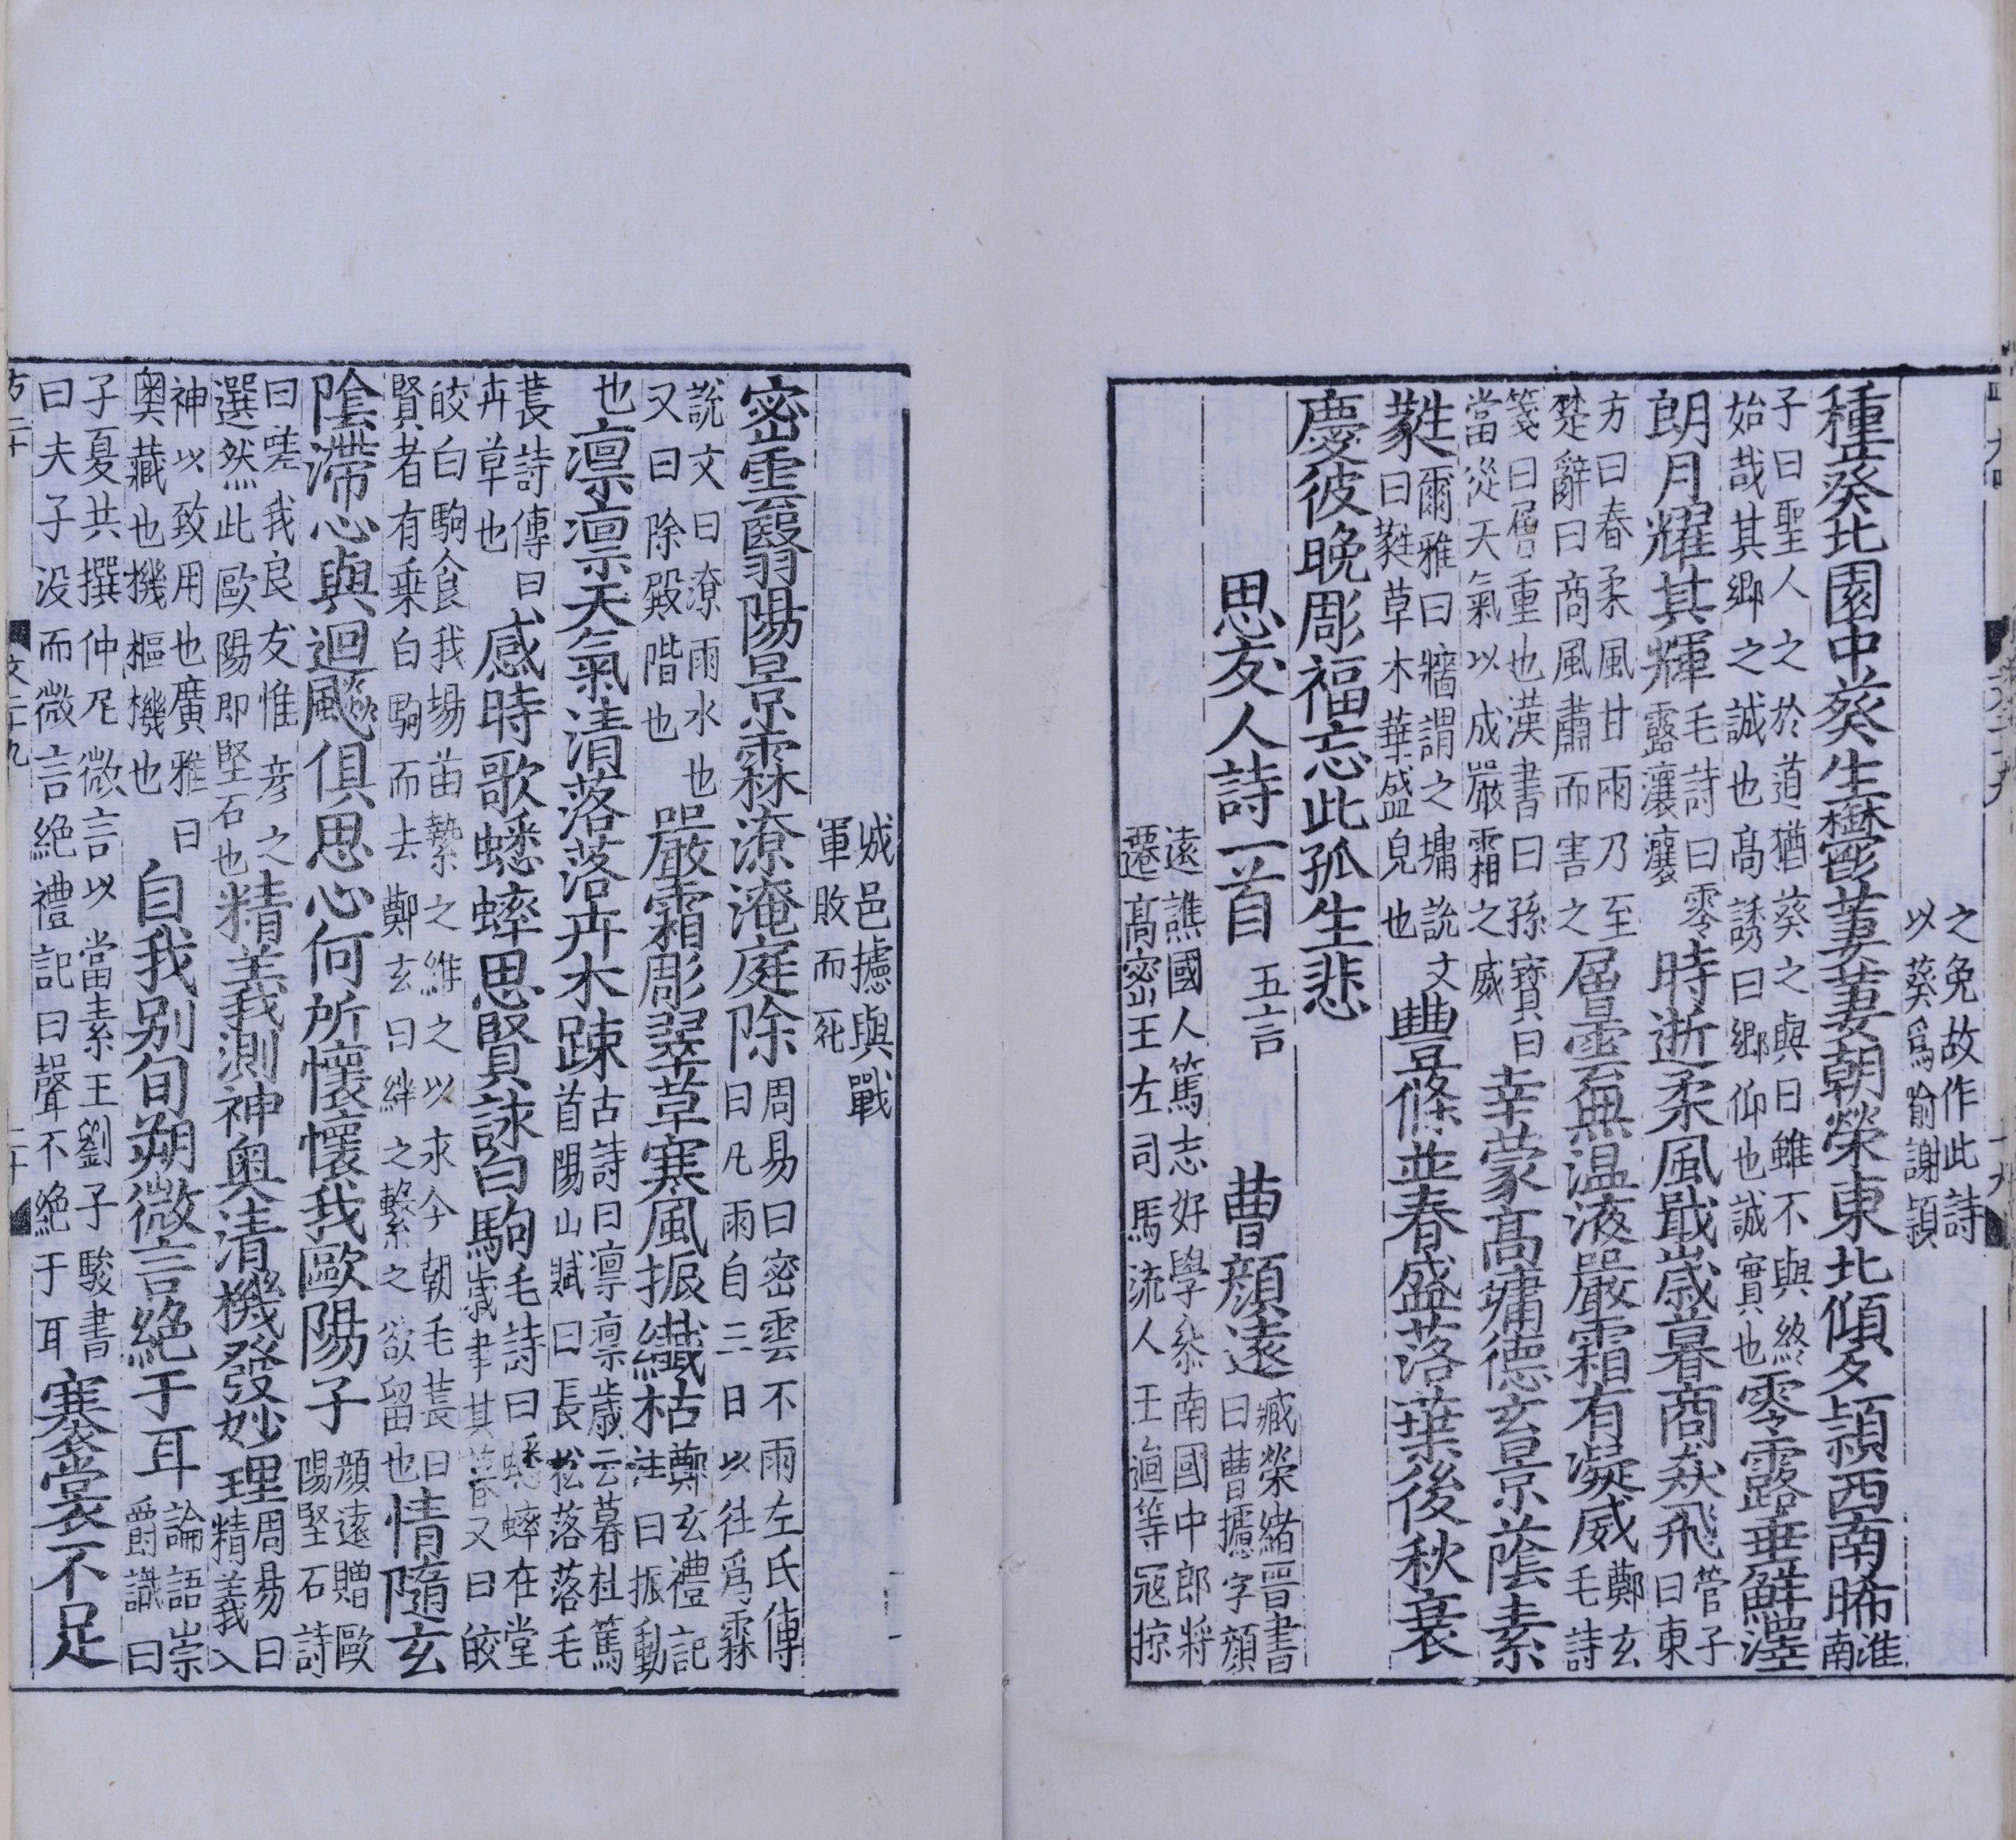 之免故作此詩以葵爲喻謝潁
種葵北園中葵生鬱萋萋朝榮東北傾夕穎西南晞淮南
子曰聖人之於道猶葵之與日雖不與終始哉其鄉之誠也高誘曰鄉仰也誠實也零露垂鮮澤
朗月耀其輝毛詩曰零露瀼瀼時逝柔風戢歲暮商猋飛管子曰東
方曰春柔風甘雨乃至楚辭曰商風肅而害之層雲無温液嚴霜有凝威鄭玄毛詩
箋曰層重也漢書曰孫寶曰當從天氣以成嚴霜之威幸蒙高墉德玄景蔭素
蕤爾雅曰牆謂之墉說文曰蕤草木華盛皃也豐條並春盛落葉後秋衰
慶彼晚彫福忘此孤生悲
思友人詩一首 五言 曹顔遠臧榮緒晉書曰曹攄字顔
遠譙國人篤志好學叅南國中郎將遷高密王左司馬流人王逈等寇掠
城邑攄與戰軍敗而死
密雲翳陽景霖潦淹庭除周易曰密雲不雨左氏傳曰凡雨自三日以往爲霖
說文曰潦雨水也又曰除殿階也嚴霜彫翠草寒風振纖枯鄭玄禮記注曰振動
也凛凛天氣清落落卉木踈古詩曰凛凛歲云暮杜篤首陽山賦曰長松落落毛
萇詩傳曰卉草也感時歌蟋蟀思賢詠白駒毛詩曰蟋蟀在堂歲聿其暮又曰皎
皎白駒食我場苗縶之維之以永今朝毛萇曰賢者有乗白駒而去鄭玄曰絆之繫之欲留也情隨玄
陰滯心與迴飈俱思心何所懷懷我歐陽子顔遠贈歐陽堅石詩
曰嗟我良友惟彦之選然此歐陽即堅石也精義測神奥清機發妙理周易曰精義入
神以致用也廣雅曰奥藏也機樞機也自我别旬朔微言絶于耳論語崇爵讖曰
子夏共撰仲尼微言以當素王劉子駿書曰夫子没而微言絶禮記曰聲不絶于耳褰裳不足